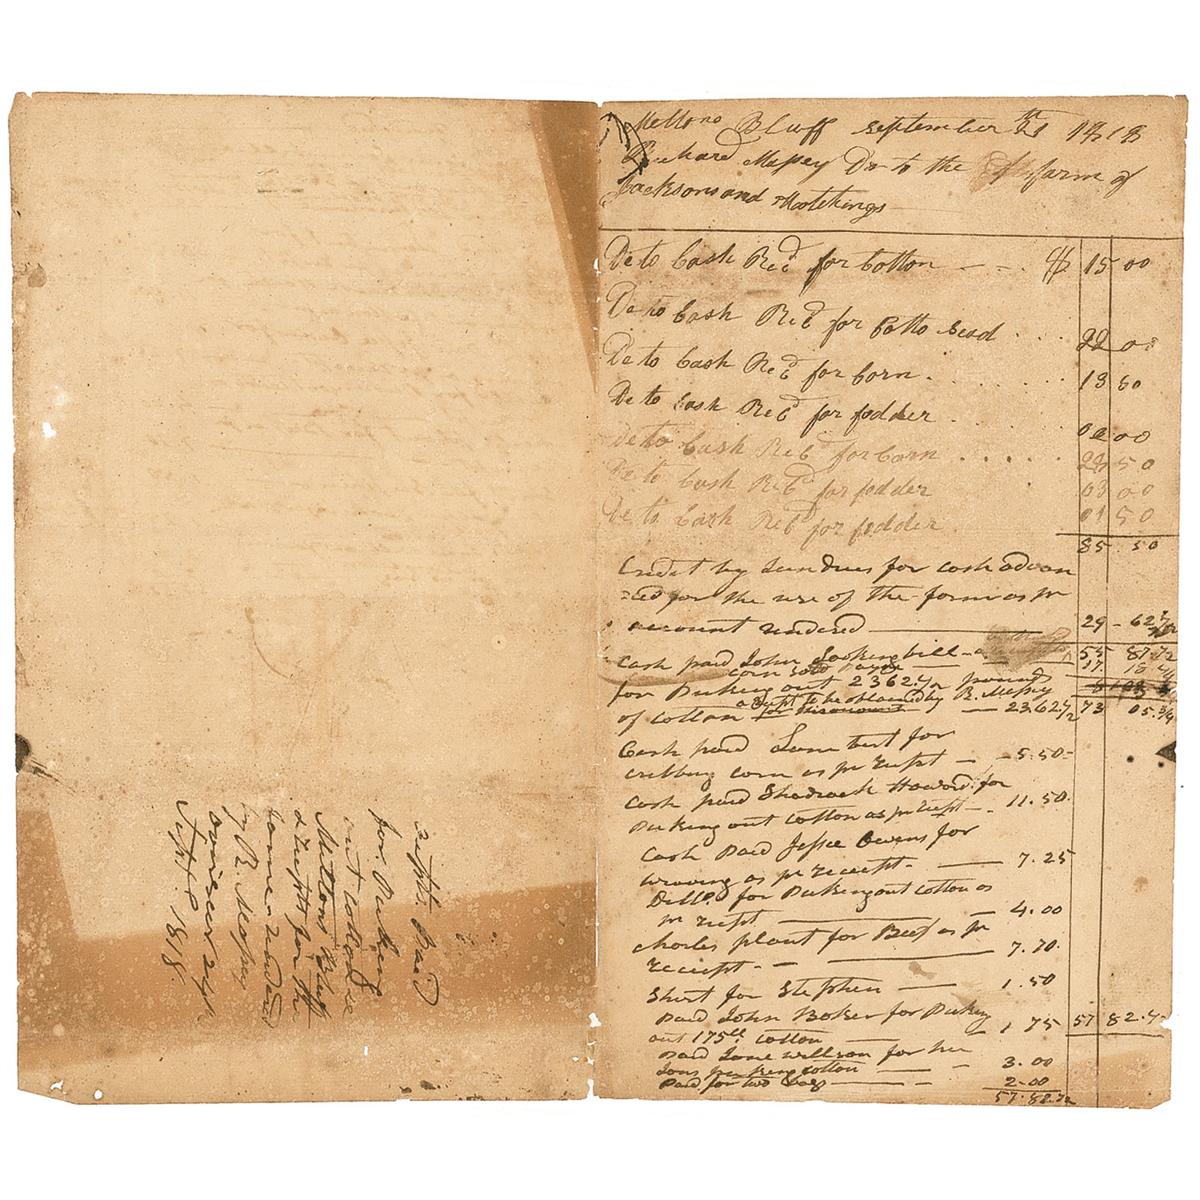 Meltons Bluff September 21th 1818
Richard Massey Dr to the farm of
Jacksons and Hutchings
De to Cash Recd for Cotton $ 15 00
De to Cash Recd for Cotto Seed 22 00
De to Cash Recd for Corn 13 50
De to Cash Recd for fodder 00
De to Cash Recd for Corn 28 50
De to Cash Recd for fodder 03 00
De to Cash Recd for fodder 01 50
85 . 50
Credit by Sundries for cash advan
ced for the use of the farm as pr
account rendered 29 - 62½
55 87.½
Cash paid John bill
corn sold 17. 18
for Picking out 2362.½ pounds
a Rcept to be obtained by R. Massey
of cotton 23.62½ 73 05.¾
Cash paid Lambert for
cribbing corn as pr Recpt - 5.50 -
Cash paid Shadrach Howard for
Picking out cotton as pr Recpt - 11.50
Cash Paid Jesse Owens for
weaving as pr receipt - 7.25
Ditto for Picking out cotton as
pr Recpt 4.00
Charles plant for Beef as pr
receipt - 7.70
Shirt for Stephen 1.50
Paid John Boker for Picking
out 175 lb cotton 1 75 57 82.½
Paid Jane willson for her
Sons picking cotton 3.00
Paid for two 2.00
57.82.½
recpts. Paid
for Picking
out cotton
Meltons Bluff
a Recpt for the
same rendered
by R. Massey
overseer 21st
Sept. 1818.